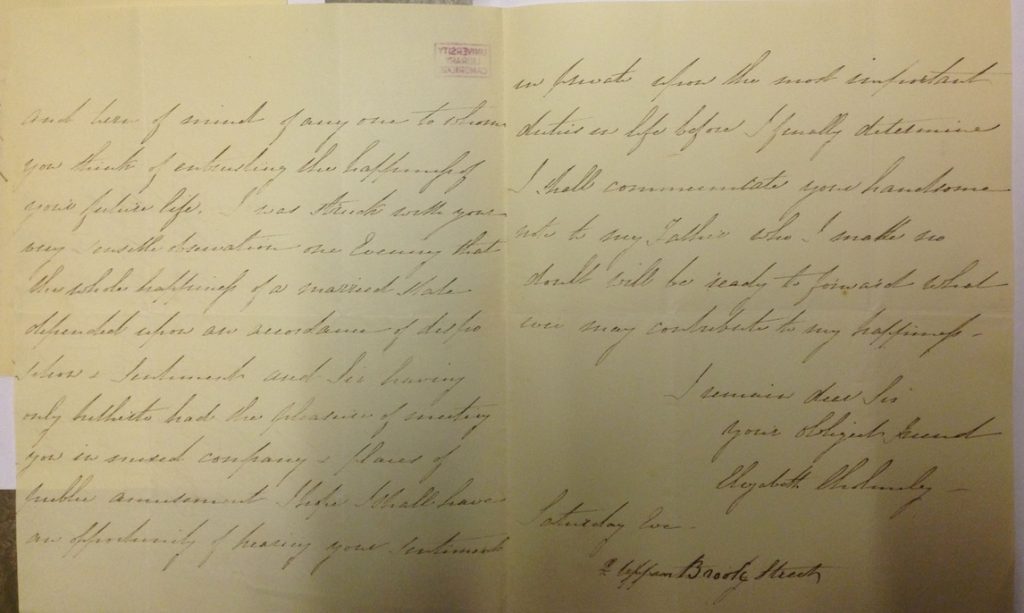 and turn of mind of any one to whom
you think of entrusting the happiness of
your future life. I was struck with your
very sensible observation one Evening that
the whole happiness of a married state
depended upon an accordance of dispo
sition & Sentiment and Sir having
only hitherto had the pleasure of meeting
you in mixed company & places of
public amusement I hope I shall have
an opportunity of hearing your Sentiments
UNIVERSITY
LIBRARY
CAMBRIDGE
in private upon the most important
duties in life before I finally determine
I shall communicate your handsome
note to my Father who I make no
doubt will be ready to forward what
ever may contribute to my happiness -
I remain dear Sir
your obliged friend
Elizabeth Cholmley -
Saturday Eve -
Upper Brook Street